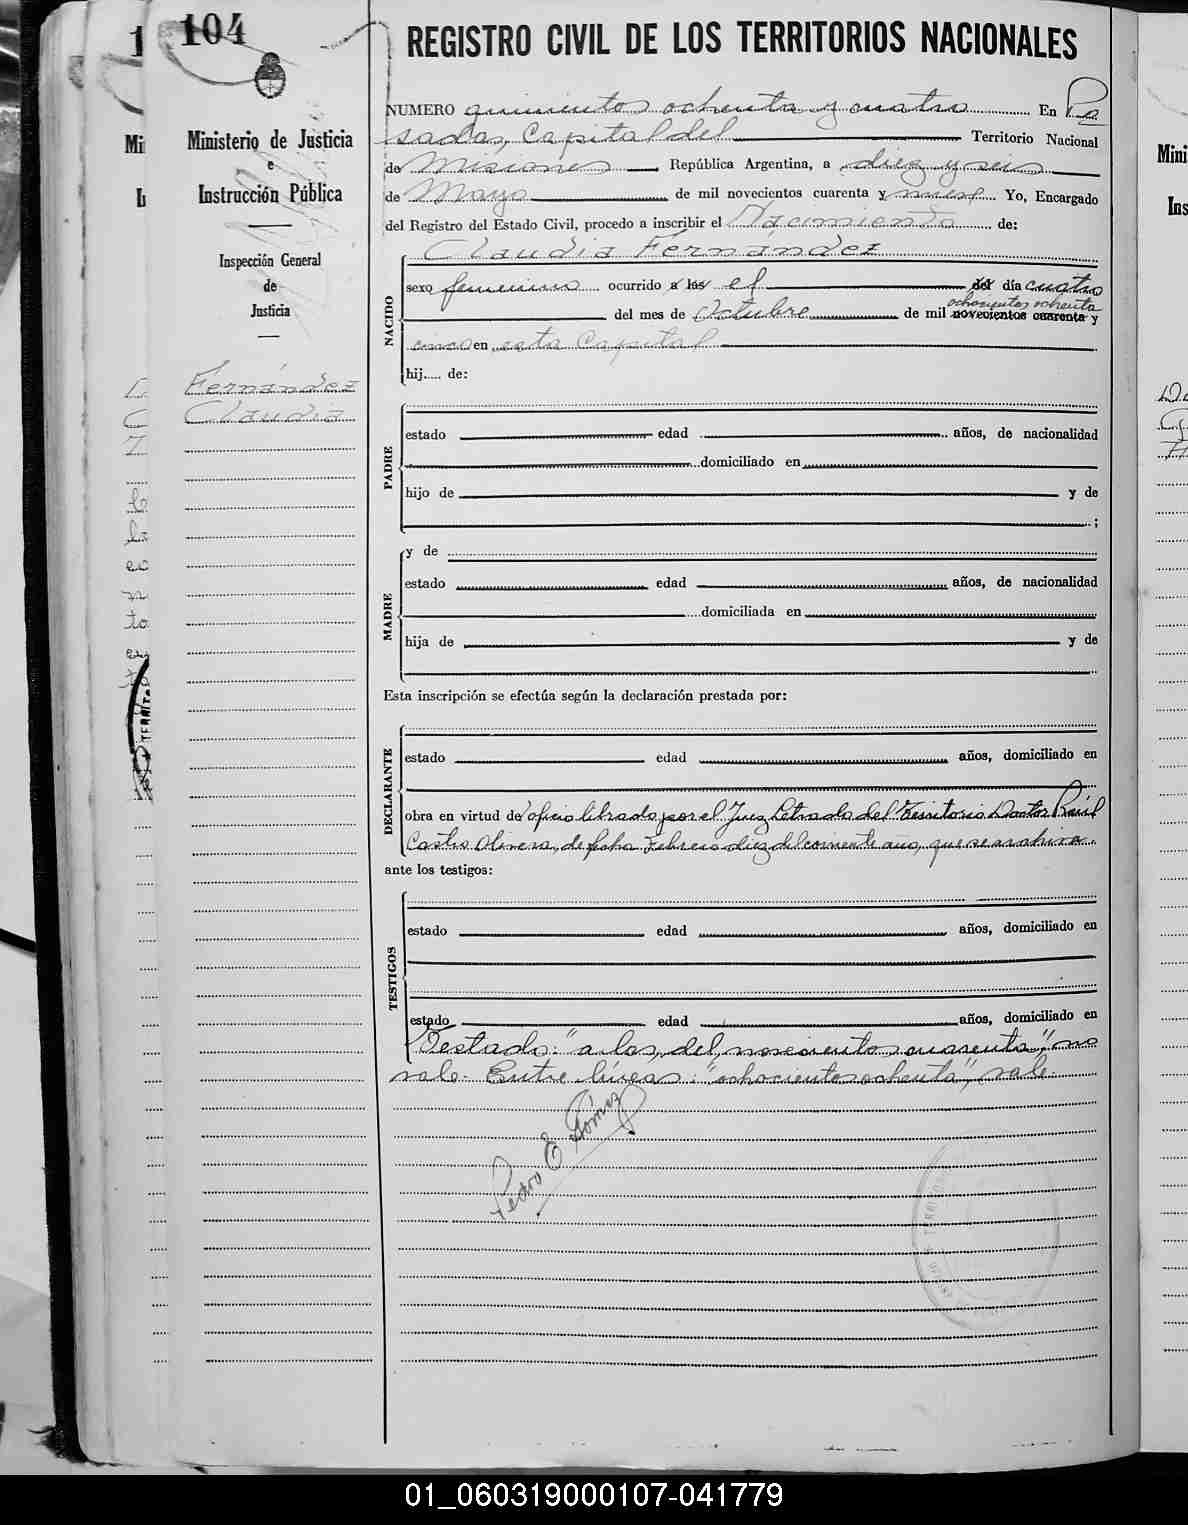 104
Ministerio de Justicia
e
Instrucción Pública
Inspección General
de
Justicia
Fernández
Claudia
REGISTRO CIVIL DE LOS TERRITORIOS NACIONALES
NUMERO quinientos ochenta y cuatro En Po
sadas, Capital del Territorio Nacional
de Misiones República Argentina, a diez y seis
de Mayo de mil novecientos cuarenta y nueve Yo, Encargado
del Registro del Estado Civil, procedo a inscribir el Nacimiento de:
Claudia Fernandez
NACIDO
sexo femenino ocurrido a las el del día cuatro
ochocientos ochenta
del mes de Octubre de mil novecientos cuarenta y
cinco en esta Capital
hij.... de:
PADRE
estado edad años, de nacionalidad
domiciliado en
hijo de y de
;
MADRE
y de
estado edad años, de nacionalidad
domiciliada en
hija de y de
Esta inscripción se efectúa según la declaración prestada por:
DECLARANTE
estado edad años, domiciliado en
obra en virtud de oficio librado por el Juez Letrado del Territorio Doctor Raúl
Castro Olivera, de fecha Febrero diez del corriente año, que se archiva.
ante los testigos:
TESTIGOS
estado edad años, domiciliado en
estado edad años, domiciliado en
Testado: "a las, del, novecientos cuarenta", no
vale. Entre líneas: "ochocientos ochenta", vale.
Pedro E. Gómez
01_060319000107-041779